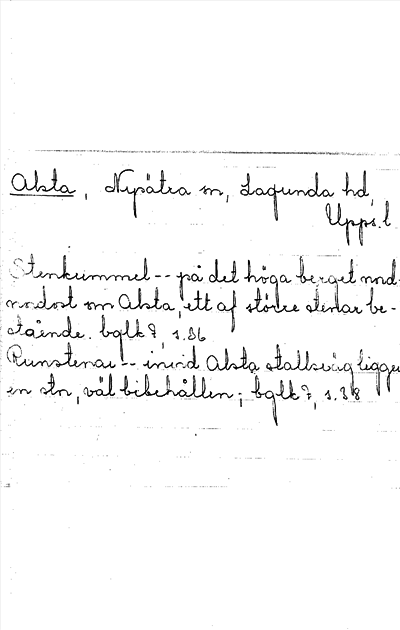 Alsta, Nysätra sn, Lagunda hd,
Upps. l.
Stenkummel -- på det höga berget nord-
nordost om Alsta, ett af större stenar be-
stående. bglk 7, s. 36
Runstenar -- invid Alsta stallsväg ligger
en stn, väl bibehållen; bglk 7, s. 38